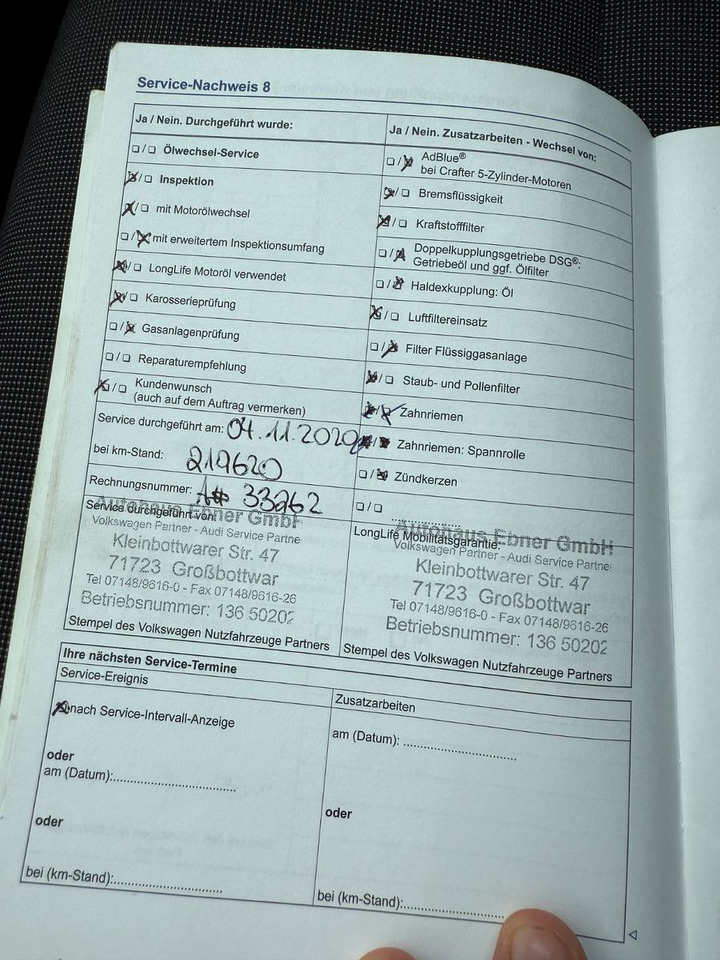 Service-Nachweis 8
Ja / Nein. Durchgeführt wurde:
☐/☐ Ölwechsel-Service
☒/☐ Inspektion
☒/☐ mit Motorölwechsel
☐/☒ mit erweitertem Inspektionsumfang
☒/☐ LongLife Motoröl verwendet
☒/☐ Karosserieprüfung
☐/☒ Gasanlagenprüfung
☐/☐ Reparaturempfehlung
☒/☐ Kundenwunsch
(auch auf dem Auftrag vermerken)
Service durchgeführt am: 04.11.2020
bei km-Stand: 219620
Rechnungsnummer: 33262
Service durchgeführt von:
Autohaus Ebner GmbH
Volkswagen Partner - Audi Service Partne
Kleinbottwarer Str. 47
71723 Großbottwar
Tel 07148/9616-0 - Fax 07148/9616-26
Betriebsnummer: 136 50202
Stempel des Volkswagen Nutzfahrzeuge Partners
Ja / Nein. Zusatzarbeiten - Wechsel von:
☐/☒ AdBlue®
bei Crafter 5-Zylinder-Motoren
☒/☐ Bremsflüssigkeit
☒/☐ Kraftstofffilter
☐/☒ Doppelkupplungsgetriebe DSG®:
Getriebeöl und ggf. Ölfilter
☐/☒ Haldexkupplung: Öl
☒/☐ Luftfiltereinsatz
☐/☒ Filter Flüssiggasanlage
☒/☐ Staub- und Pollenfilter
☒/☒ Zahnriemen
☒/☒ Zahnriemen: Spannrolle
☐/☒ Zündkerzen
☐/☐
LongLife Mobilitätsgarantie:
Autohaus Ebner GmbH
Volkswagen Partner - Audi Service Partne
Kleinbottwarer Str. 47
71723 Großbottwar
Tel 07148/9616-0 - Fax 07148/9616-26
Betriebsnummer: 136 50202
Stempel des Volkswagen Nutzfahrzeuge Partners
Ihre nächsten Service-Termine
Service-Ereignis
☒ nach Service-Intervall-Anzeige
oder
am (Datum):
oder
bei (km-Stand):
Zusatzarbeiten
am (Datum):
oder
bei (km-Stand):